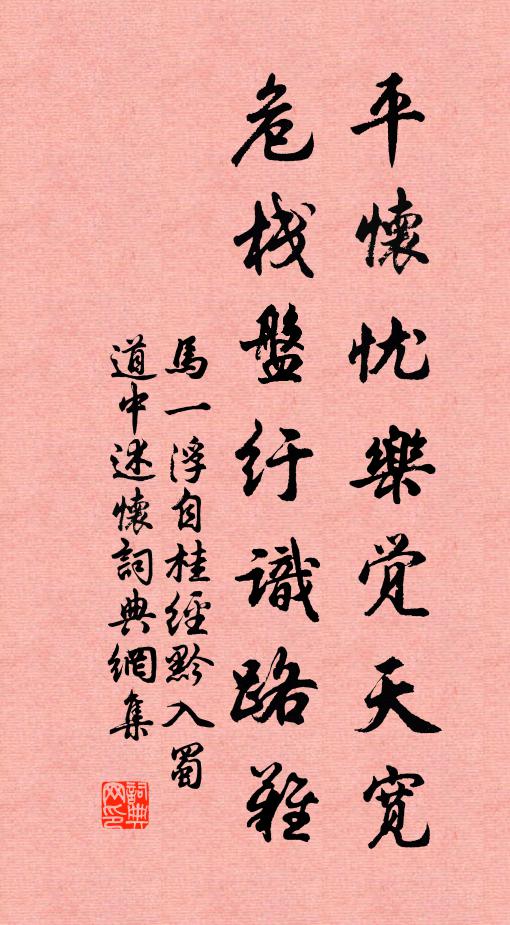 平懷忧樂覚天寬
危栈盤纡識路難
馬一浮自桂經黔入蜀
道中述懷詞典網集
詞典网印